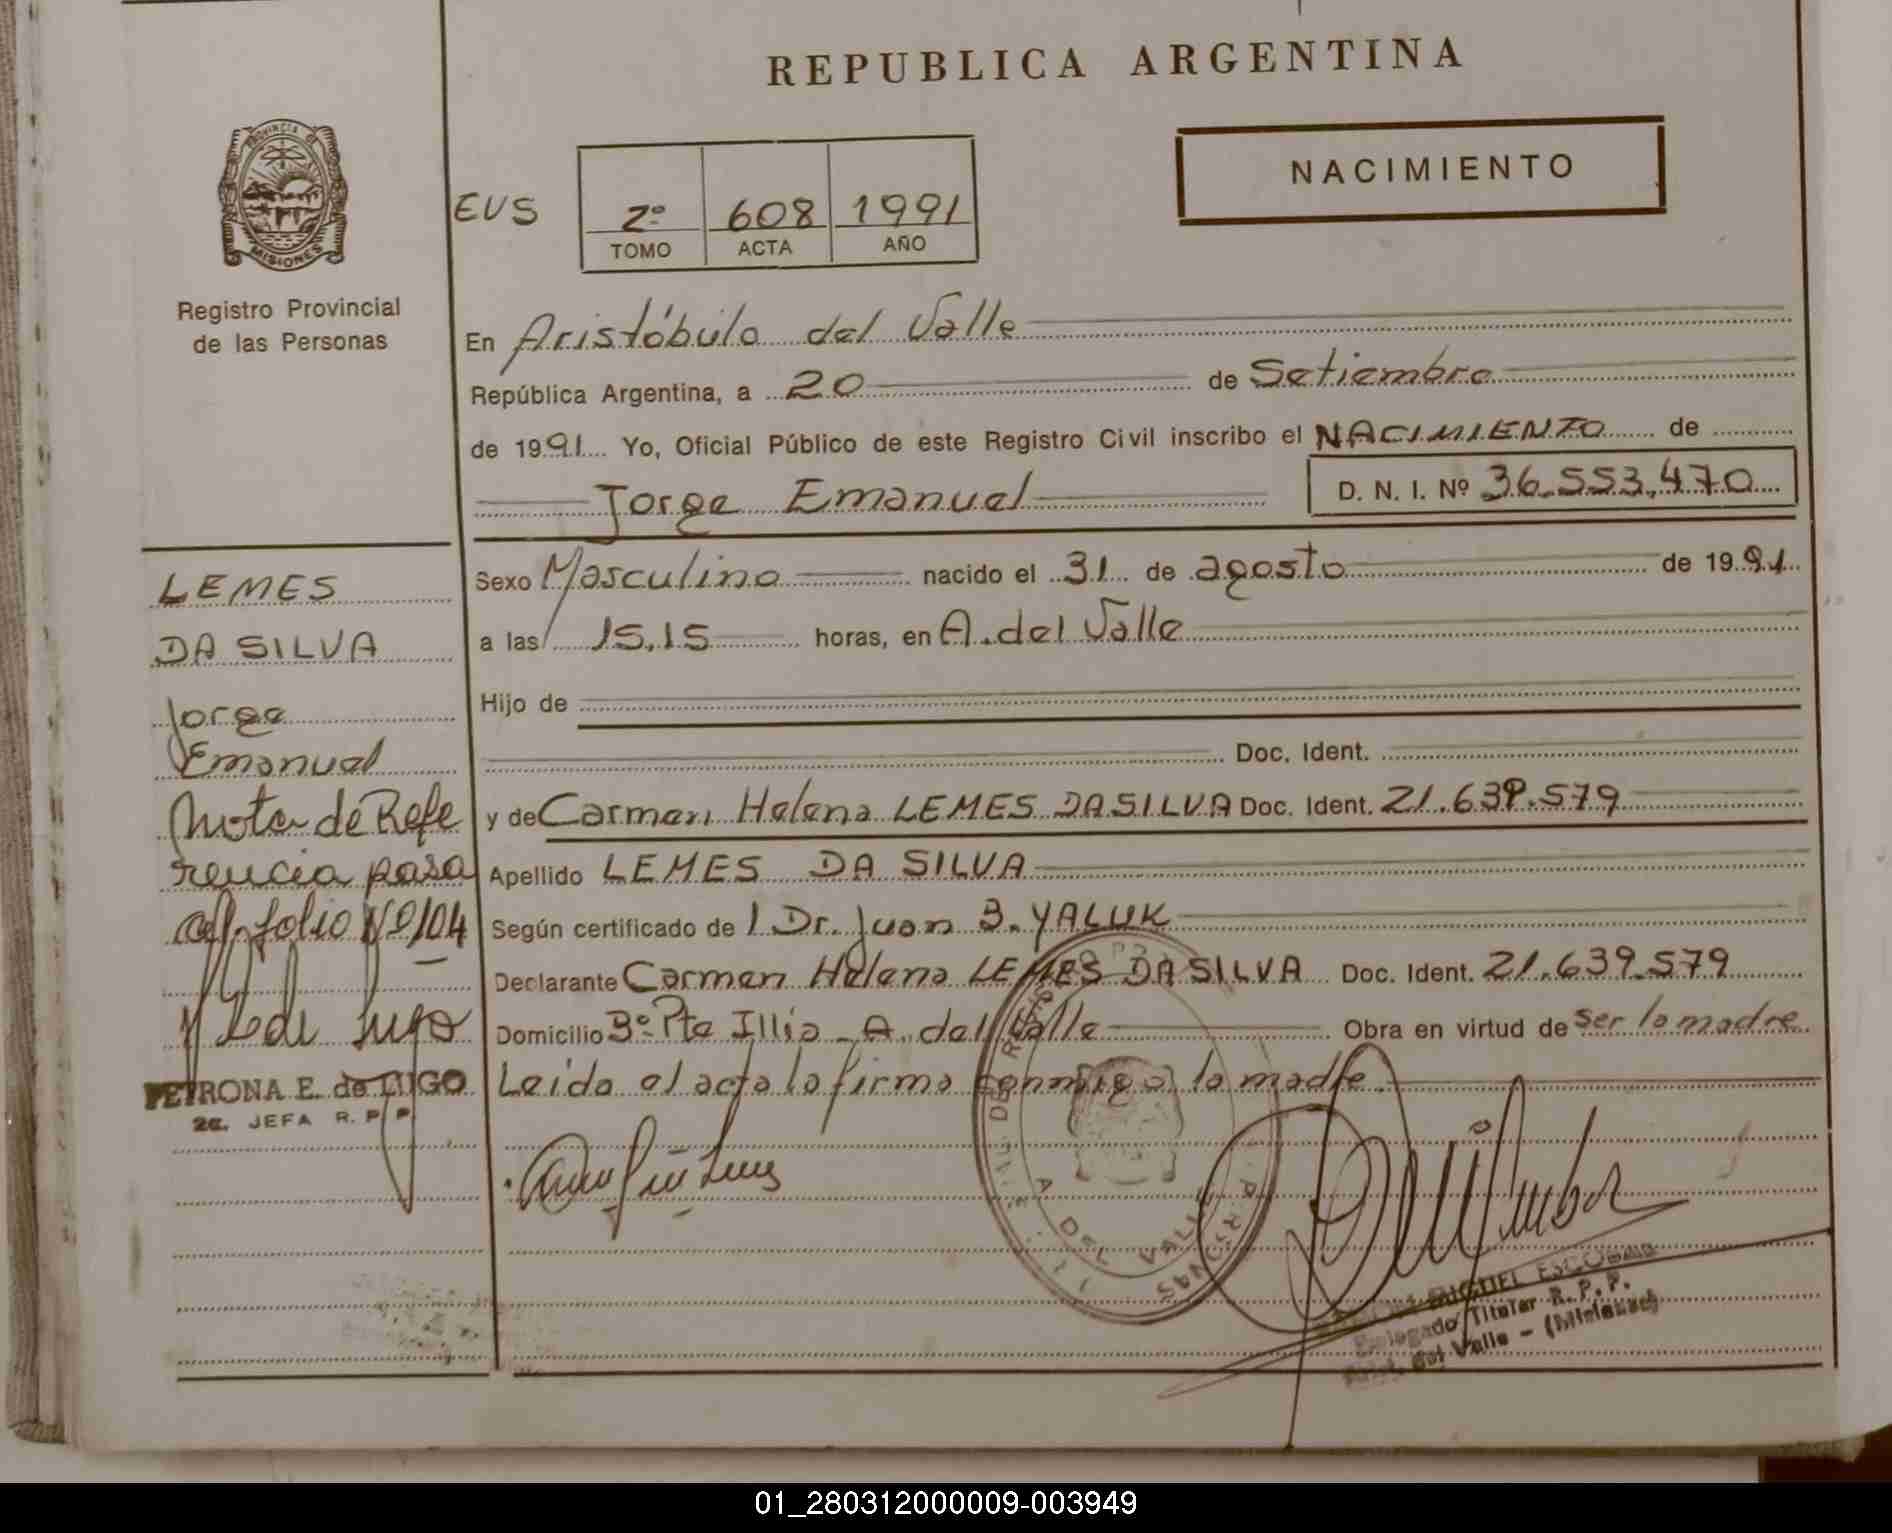 REPUBLICA ARGENTINA
NACIMIENTO
PROVINCIA DE
MISIONES
Registro Provincial
de las Personas
EUS
2º 608 1991
TOMO ACTA AÑO
En Aristóbulo del Valle
República Argentina, a 20 de Setiembre
de 1991 Yo, Oficial Público de este Registro Civil inscribo el NACIMIENTO de
Jorge Emanuel D. N. I. Nº 36.553.470
Sexo Masculino nacido el 31 de agosto de 1991
a las 15.15 horas, en A. del Valle
Hijo de
Doc. Ident.
y de Carmen Helena LEMES DA SILVA Doc. Ident. 21.639.579
Apellido LEMES DA SILVA
Según certificado de 1 Dr. Juan B. YALUK
Declarante Carmen Helena LEMES DA SILVA Doc. Ident. 21.639.579
Domicilio Bº Pte Illia A. del Valle Obra en virtud de ser la madre
Leida el acta la firma conmigo la madre.
LEMES
DA SILVA
Jorge
Emanuel
Nota de Refe
rencia pasa
al folio Nº 104
PETRONA E. de LUGO
2a. JEFA R. P. P.
A DEL VALLE
MIGUEL ESCOBAR
Delegado Titular R. P. P.
del Valle - (Misiones)
01_280312000009-003949